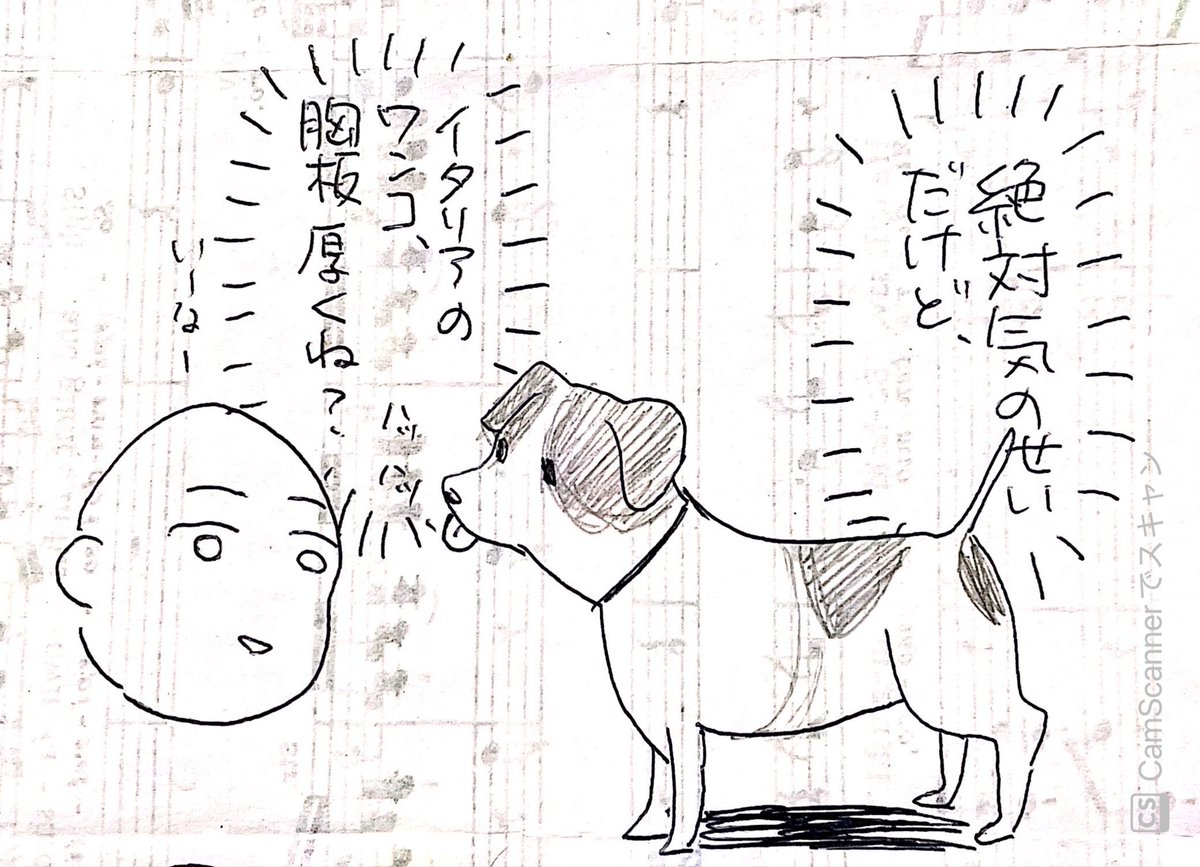 絶対気のせい
だけど、
イタリアの
ワンコ、
胸板厚くね?
ハッ
ハッ
いーなー
CS CamScannerでスキャン